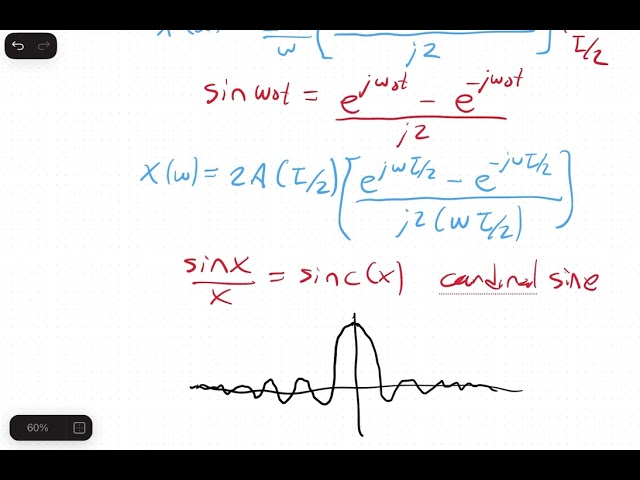 X(ω) = ω [ j2 ] τ/2
sin ω₀t = (e^{jω₀t} − e^{−jω₀t}) / j2
X(ω) = 2A(τ/2) [ (e^{jωτ/2} − e^{−jωτ/2}) / j2(ωτ/2) ]
sinx/x = sinc(x) cardinal sine
60%